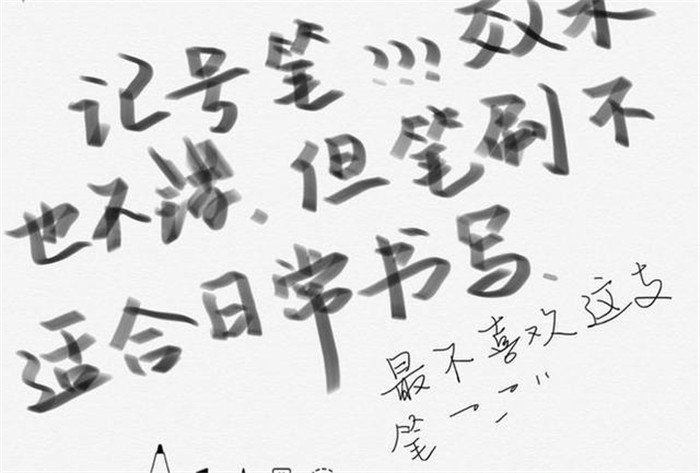 记号笔!!! 效果
也不错、但笔刷不
适合日常书写.
最不喜欢这支
笔